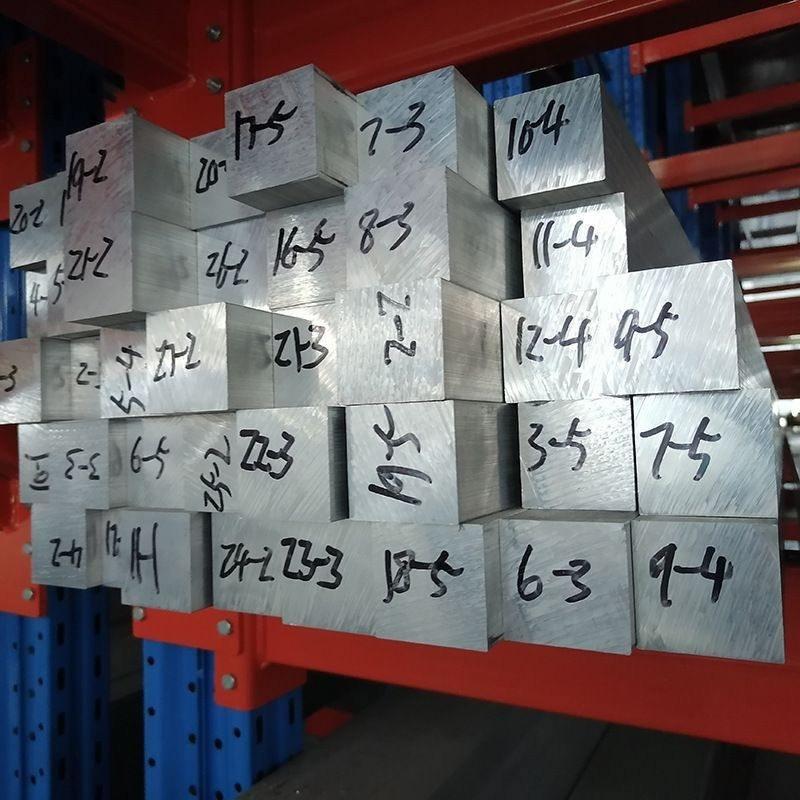 17-5
7-3
10-4
19-2
20-2
21-2
26-2
16-5
8-3
11-4
4-5
5-4
27-2
21-3
2-2
12-4
9-5
3-3
6-5
25-2
22-3
19-5
3-5
7-5
4-2
11-1
24-2
23-3
18-5
6-3
9-4